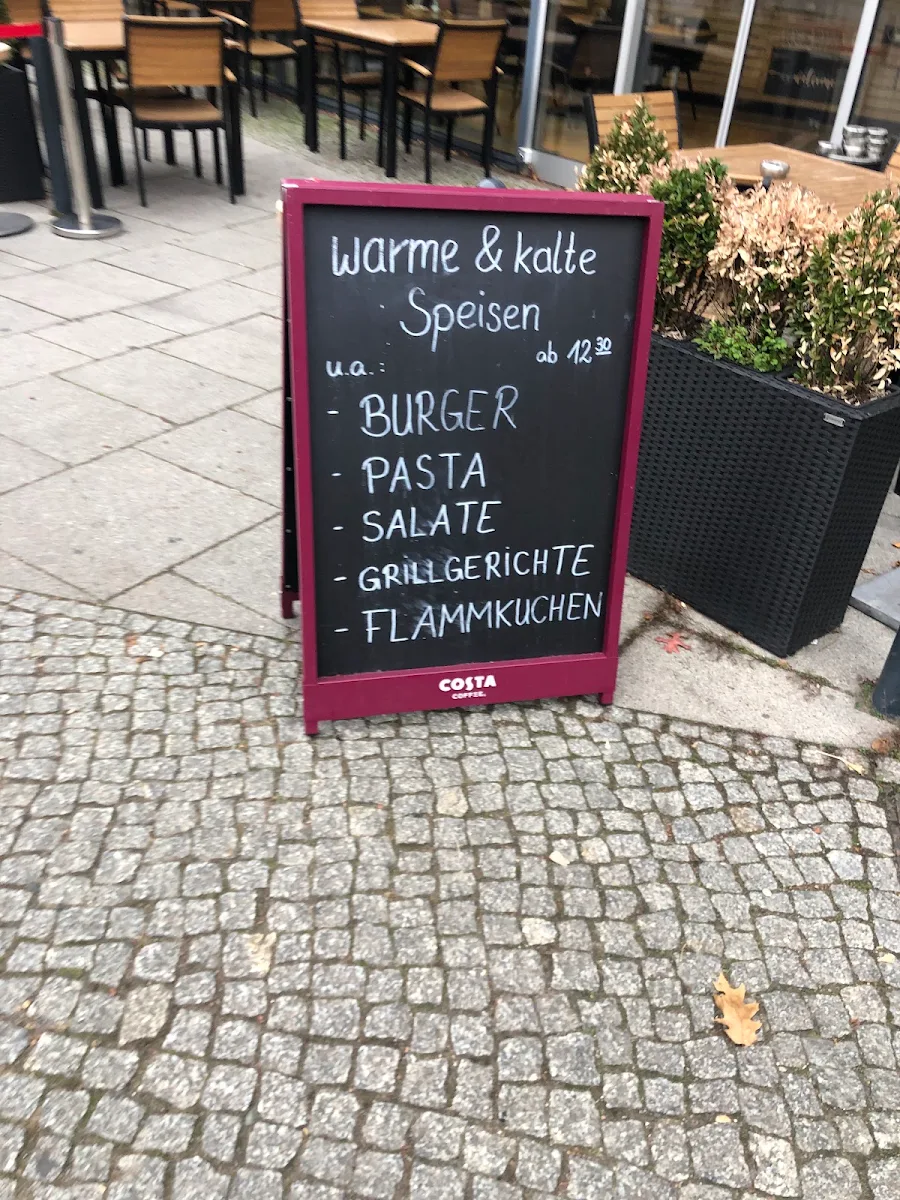 warme & kalte
Speisen
u.a.: ab 12 30
- BURGER
- PASTA
- SALATE
- GRiLLGERiCHTE
- FLAMMKUCHEN
COSTA
COFFEE.